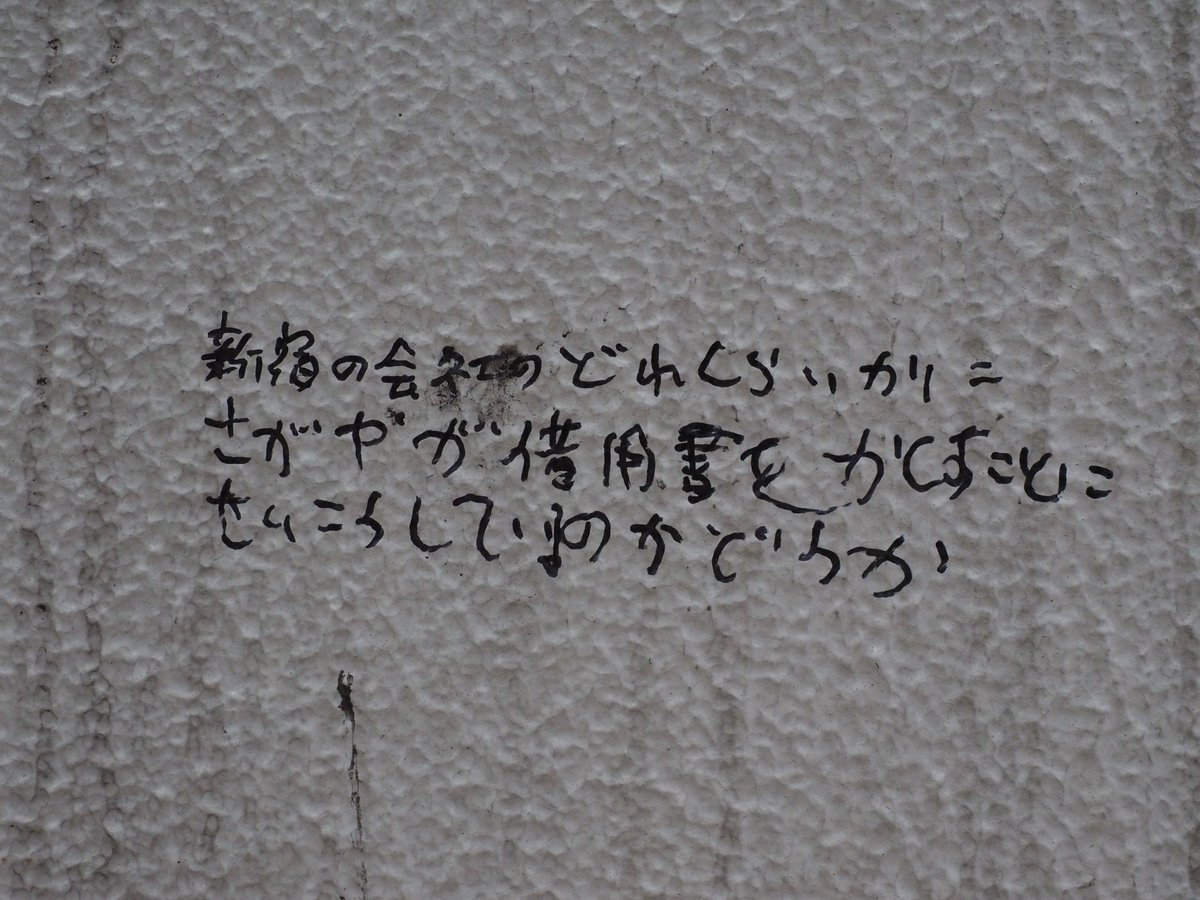 新宿の会社のどれくらいかりに
さがやが借用書をかくすことに
せいこうしているのかどうか